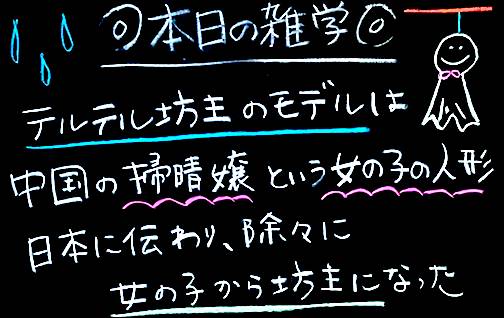 ◎本日の雑学◎
テルテル坊主のモデルは
中国の掃晴嬢という女の子の人形
日本に伝わり、除々に
女の子から坊主になった